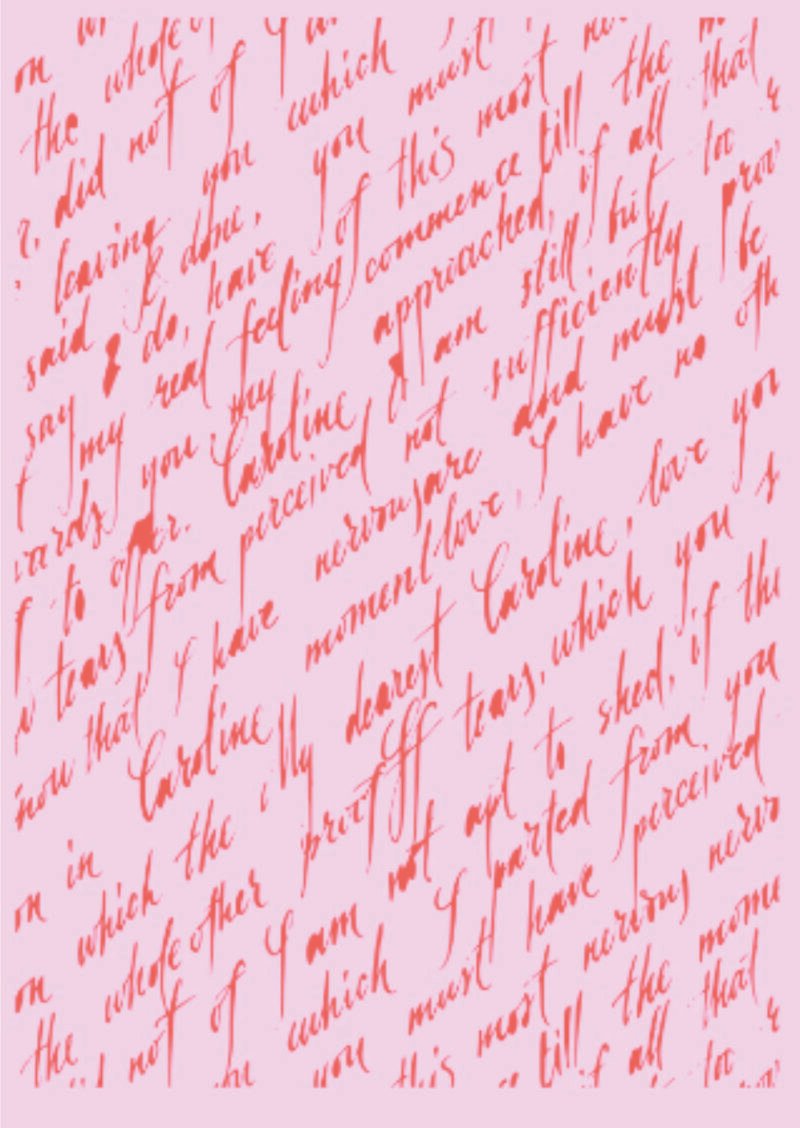 on
the whole
did not of
r, leaving you which
said & done, you must
say I do, have of this most
my real feeling commence till the
wards you, my approached, if all that
to offer. Caroline I am still but too
tears from perceived not sufficiently prov
now that I have nervous are and must be
Caroline moment love, I have no oth
on in My dearest Caroline, love you
on which the proof of tears, which you s
the whole other I am not apt to shed, if the
not of which I parted from you
you must have perceived
this most nervous nervo
till the mome
if all that
too